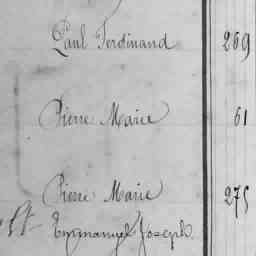 Paul Ferdinand 269
Pierre Marie 61
Pierre Marie 275
Emmanuel Joseph